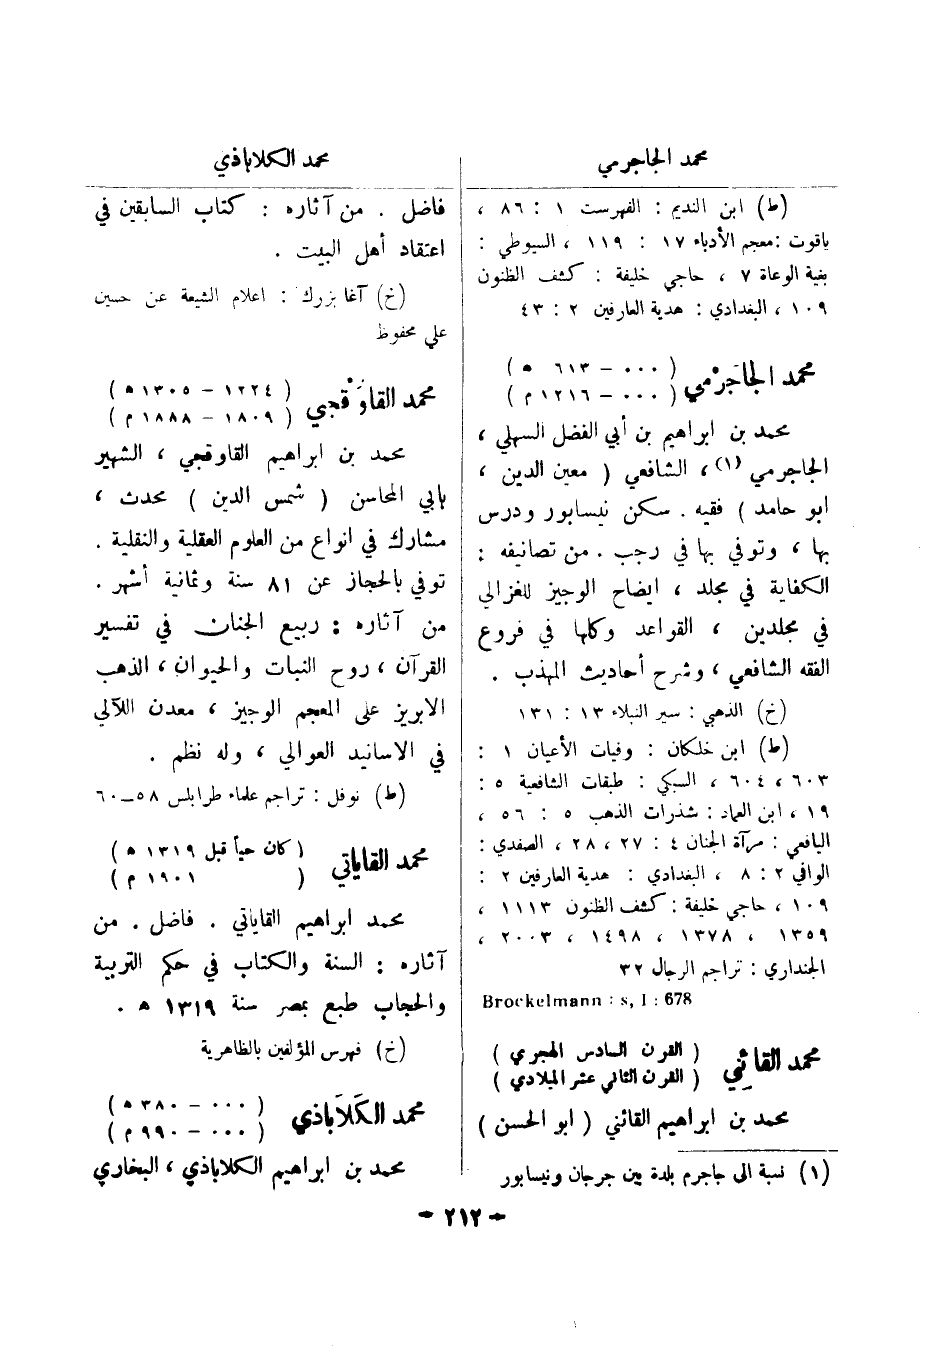 محمد الجاجرمي
(ط) ابن النديم : الفهرست ١ : ٨٦ ،
ياقوت : معجم الأدباء ١٧ : ١١٩ ، السيوطي :
بغية الوعاة ٧ ، حاجي خليفة : كشف الظنون
١٠٩ ، البغدادي : هدية العارفين ٢ : ٤٣
محمد الجاجَرْمي ( ٠٠٠ - ٦١٣ ه )
( ٠٠٠ - ١٢١٦ م )
محمد بن ابراهيم بن أبي الفضل السهلي ،
الجاجرمي (١) ، الشافعي ( معين الدين ،
ابو حامد ) فقيه . سكن نيسابور ودرس
بها ، وتوفي بها في رجب . من تصانيفه :
الكفاية في مجلد ، ايضاح الوجيز للغزالي
في مجلدين ، القواعد وكلها في فروع
الفقه الشافعي ، وشرح أحاديث المهذب .
(خ) الذهبي : سير النبلاء ١٣ : ١٣١
(ط) ابن خلكان : وفيات الأعيان ١ :
٦٠٣ ، ٦٠٤ ، السبكي : طبقات الشافعية ٥ :
١٩ ، ابن العماد : شذرات الذهب ٥ : ٥٦ ،
اليافعي : مرآة الجنان ٤ : ٢٧ ، ٢٨ ، الصفدي :
الوافي ٢ : ٨ ، البغدادي : هدية العارفين ٢ :
١٠٩ ، حاجي خليفة : كشف الظنون ١١١٣ ،
١٣٥٩ ، ١٣٧٨ ، ١٤٩٨ ، ٢٠٠٣ ،
الجنداري : تراجم الرجال ٣٢
Brockelmann : s, I : 678
محمد القائِني ( القرن السادس الهجري )
( القرن الثاني عشر الميلادي )
محمد بن ابراهيم القائني ( ابو الحسن )
(١) نسبة الى جاجرم بلدة بين جرجان ونيسابور
محمد الكلاباذي
فاضل . من آثاره : كتاب السابقين في
اعتقاد أهل البيت .
(خ) آغا بزرك : اعلام الشيعة عن حسين
علي محفوظ
محمد القاوَقْجي ( ١٢٢٤ - ١٣٠٥ ه )
( ١٨٠٩ - ١٨٨٨ م )
محمد بن ابراهيم القاوقجي ، الشهير
بابي المحاسن ( شمس الدين ) محدث ،
مشارك في انواع من العلوم العقلية والنقلية .
توفي بالحجاز عن ٨١ سنة وثمانية أشهر .
من آثاره : ربيع الجنان في تفسير
القرآن ، روح النبات والحيوان ، الذهب
الابريز على المعجم الوجيز ، معدن اللآلي
في الاسانيد العوالي ، وله نظم .
(ط) نوفل : تراجم علماء طرابلس ٥٨-٦٠
محمد القاياتي ( كان حياً قبل ١٣١٩ ه )
( ١٩٠١ م )
محمد ابراهيم القاياتي . فاضل . من
آثاره : السنة والكتاب في حكم التربية
والحجاب طبع بمصر سنة ١٣١٩ ه .
(خ) فهرس المؤلفين بالظاهرية
محمد الكَلَاباذي ( ٠٠٠ - ٣٨٠ ه )
( ٠٠٠ - ٩٩٠ م )
محمد بن ابراهيم الكلاباذي ، البخاري
- ٢١٢ -